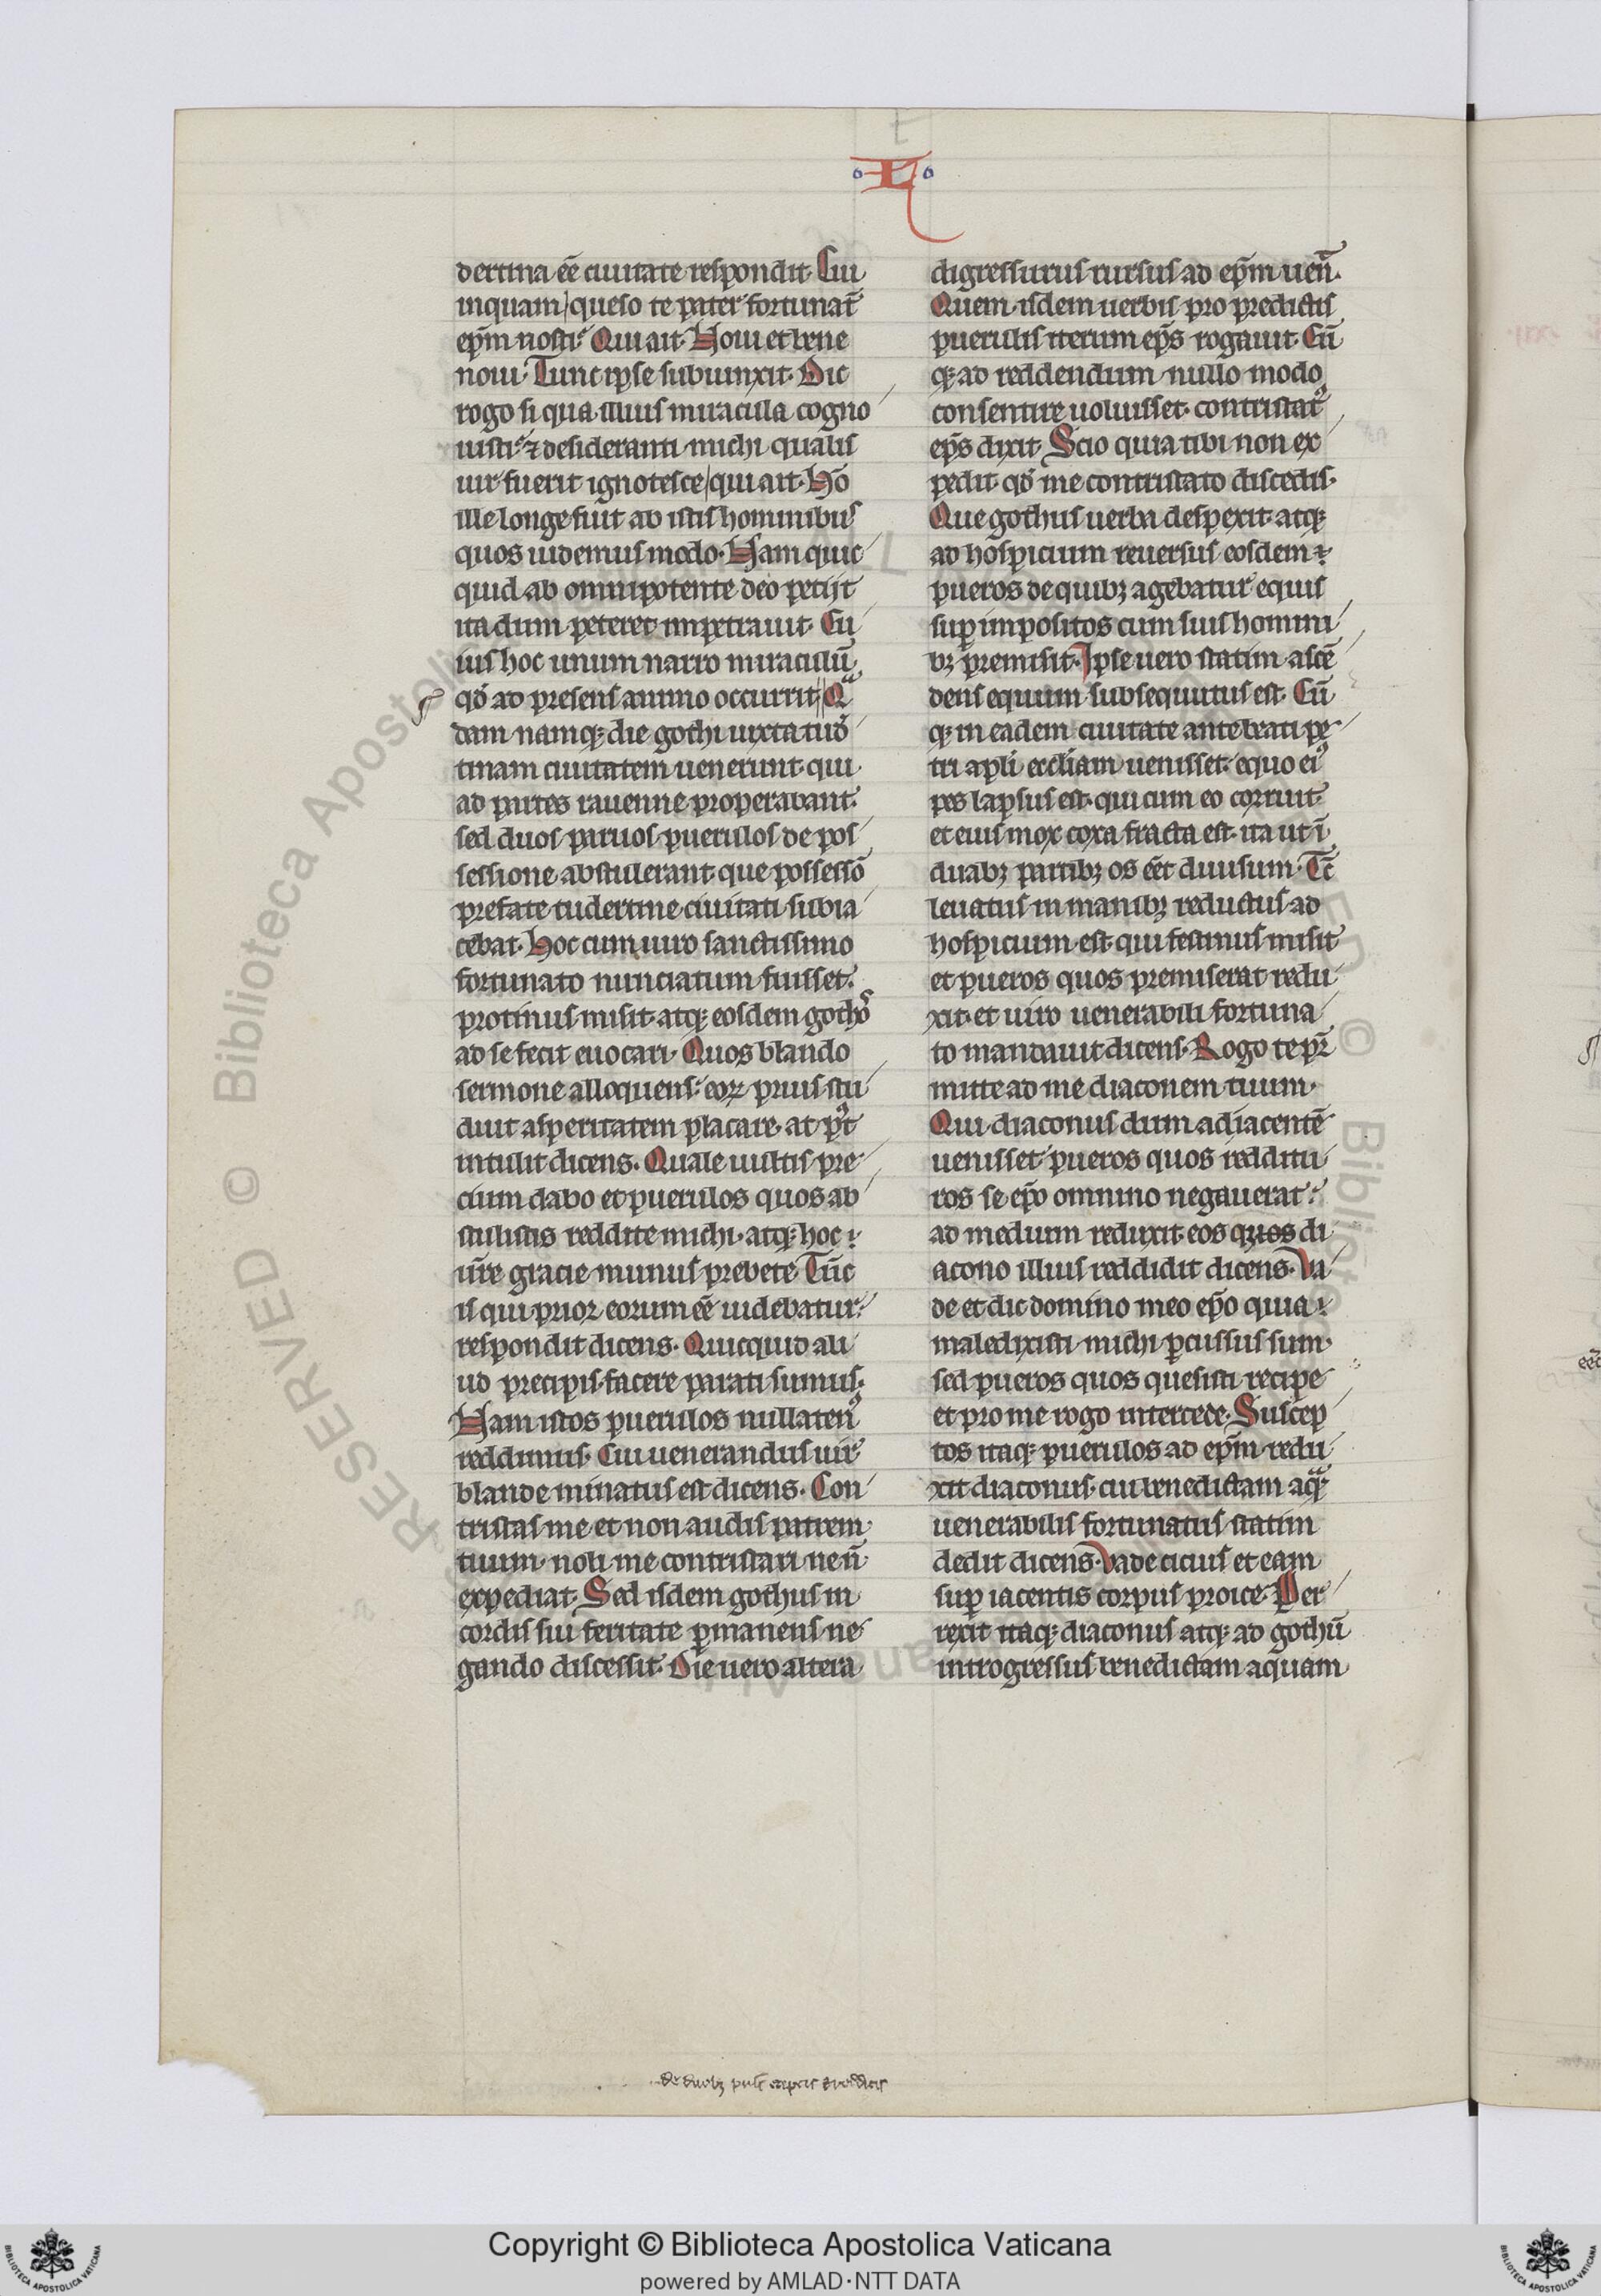 L
dertina eē ciuitate respondit. Cui
inquam queso te pater fortunat̄
ep̄m nosti. Qui ait. Noui et bene
noui. Tunc ipse subiunxit. Dic
rogo si qua illius miracula cogno
uisti. ⁊ desideranti michi qualis
uir fuerit ignotesce qui ait. Hō
ille longe fuit ab istis hominibus
quos uidemus modo. Nam quic
quid ab omnipotente deo petijt
ita dum peteret impetrauit. Cu
ius hoc unum narro miraculū
qď ad presens animo occurrit. Qᵃ
dam namqꝫ die gothi iuxta tud̾
tinam ciuitatem uenerunt qui
ad partes rauenne properabant.
sed duos paruos puerulos de pos
sessione abstulerant que possessō
prefate tudertine ciuitati subia
cebat. Hoc cum uiro sanctissimo
fortunato nunciatum fuisset.
protinus misit atqꝫ eosdem gothos
ad se fecit euocari. Quos blando
sermone alloquens. eoꝝ prius stu
duit asperitatem placare. at pꝰt
intulit dicens. Quale uultis pre
cium dabo et puerulos quos ab
stulistis reddite michi. atqꝫ hoc
ur̄e gracie munus prebete. Tūc
is qui prior eorum eē uidebatur.
respondit dicens. Quicquid ali
ud precipis facere parati sumus.
Nam istos puerulos nullatenꝰ
reddimus. Cui uenerandus uir
blande minatus est dicens. Con
tristas me et non audis patrem
tuum. noli me contristari ne n̄
expediat. Sed isdem gothus in
cordis sui feritate ꝑmanens ne
gando discessit. Die uero altera
digressurus rursus ad ep̄m uen̄.
Quem isdem uerbis pro predictis
puerulis iterum ep̄s rogauit. Cū
qꝫ ad reddendum nullo modo
consentire uoluisset. contristatꝰ
ep̄s dixit. Scio quia tibi non ex
pedit. qď me contristato discedis.
Que gothus uerba despexit. atqꝫ
ad hospicium reuersus eosdem
pueros de quibꝫ agebatur equis
suꝑimpositos cum suis homini
bꝫ premisit. Ipse uero statim ascē
dens equum subsequutus est. Cū
qꝫ in eadem ciuitate ante beati pe
tri apl̄i eccl̄iam uenisset. equo eiꝰ
pes lapsus est. qui cum eo corruit
et eius mox coxa fracta est. ita ut ī
duabꝫ partibꝫ os eēt diuisum. Tc̄
leuatus in manibꝫ reductus ad
hospicium est. qui festinus misit
et pueros quos premiserat redu
xit. et uiro uenerabili fortuna
to mandauit dicens. Rogo te pr̄
mitte ad me diaconem tuum.
Qui diaconus dum ad iacentē
uenisset pueros quos redditu
ros se ep̄o omnino negauerat.
ad medium reduxit. eos quos di
acono illius reddidit dicens. Va
de et dic domino meo ep̄o quia
maledixisti michi ꝑcussus sum.
sed pueros quos quesisti recipe
et pro me rogo intercede. Suscep
tos itaqꝫ puerulos ad ep̄m redu
xit diaconus. cui benedictam aqᵃ
uenerabilis fortunatus statim
dedit dicens. Vade cicius et eam
suꝑ iacentis corpus proice. Per
rexit itaqꝫ diaconus atqꝫ ad gothū
introgressus benedictam aquam
de duobꝫ
Copyright © Biblioteca Apostolica Vaticana
powered by AMLAD·NTT DATA